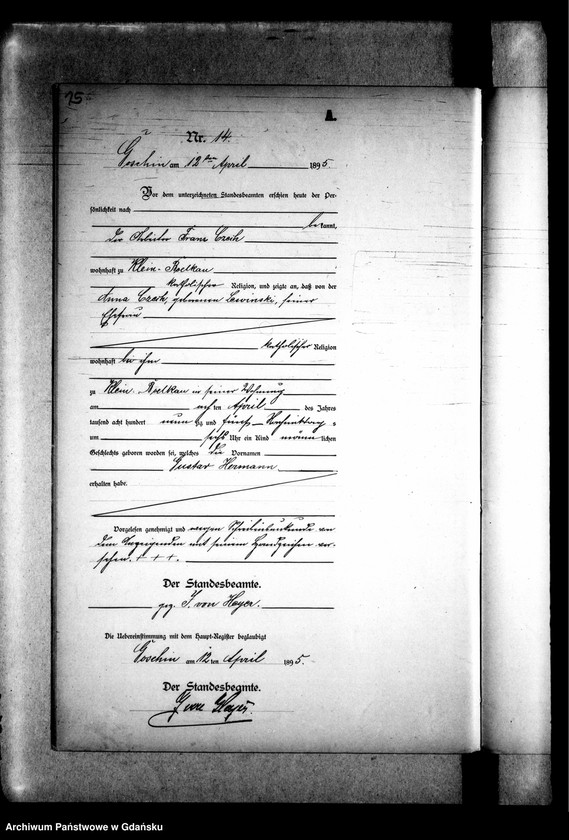 15
A.
Nr. 14.
Goschin am 12ten April 1895.
Vor dem unterzeichneten Standesbeamten erschien heute der Per-
sönlichkeit nach
bekannt,
der Arbeiter Franz Czech
wohnhaft zu Klein-Boelkau
katholischer Religion, und zeigte an, daß von der
Anna Czech, geborenen Lewinski, seiner
Ehefrau
katholischer Religion
wohnhaft bei ihm
zu Klein-Boelkau in seiner Wohnung
am achten April des Jahres
tausend acht hundert neunzig und fünf Nachmittags
um sechs Uhr ein Kind männlichen
Geschlechts geboren worden sei, welches die Vornamen
Gustav Hermann
erhalten habe.
Vorgelesen, genehmigt und wegen Schreibensunkunde von
dem Anzeigenden mit seinem Handzeichen ver-
sehen. + + +.
Der Standesbeamte.
gez. von Heyer.
Die Uebereinstimmung mit dem Haupt-Register beglaubigt
Goschin am 12ten April 1895.
Der Standesbeamte.
von Heyer.
Archiwum Państwowe w Gdańsku